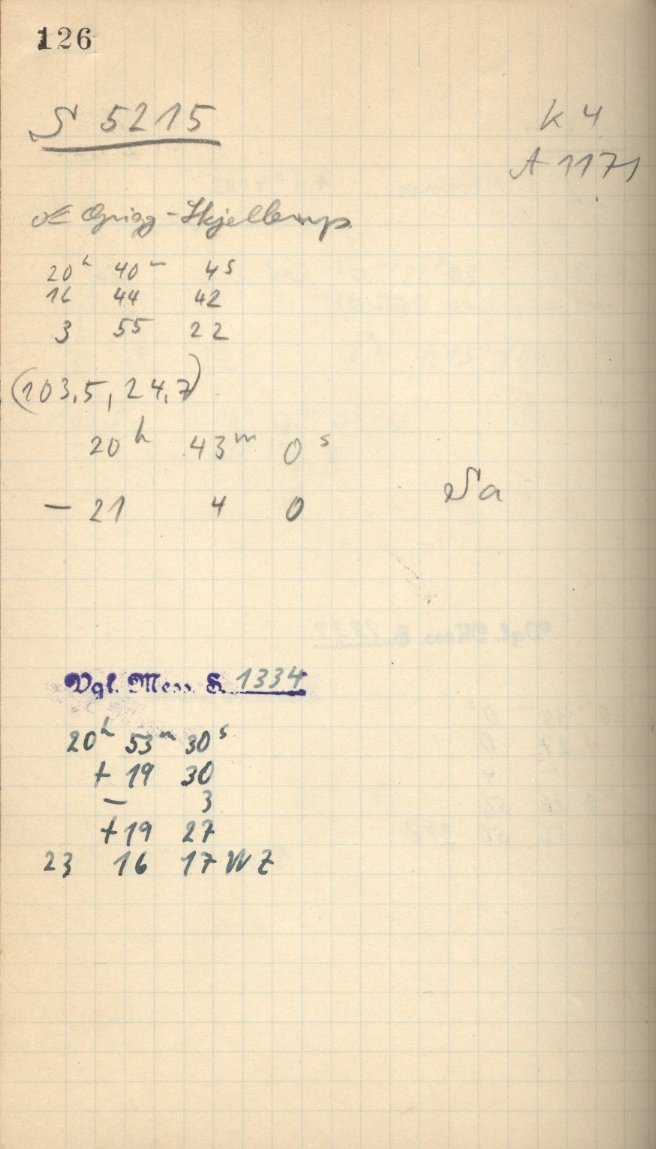 126
S 5215
K 4
A 1171
Grigg-Skjellerup
20h 40m 4s
16 44 42
3 55 22
(103,5, 24,7)
20h 43m 0s
- 21 4 0
Na
Vgl. Mess. K. 1334
20h 53m 30s
+ 19 30
- 3
+ 19 27
23 16 17 WZ